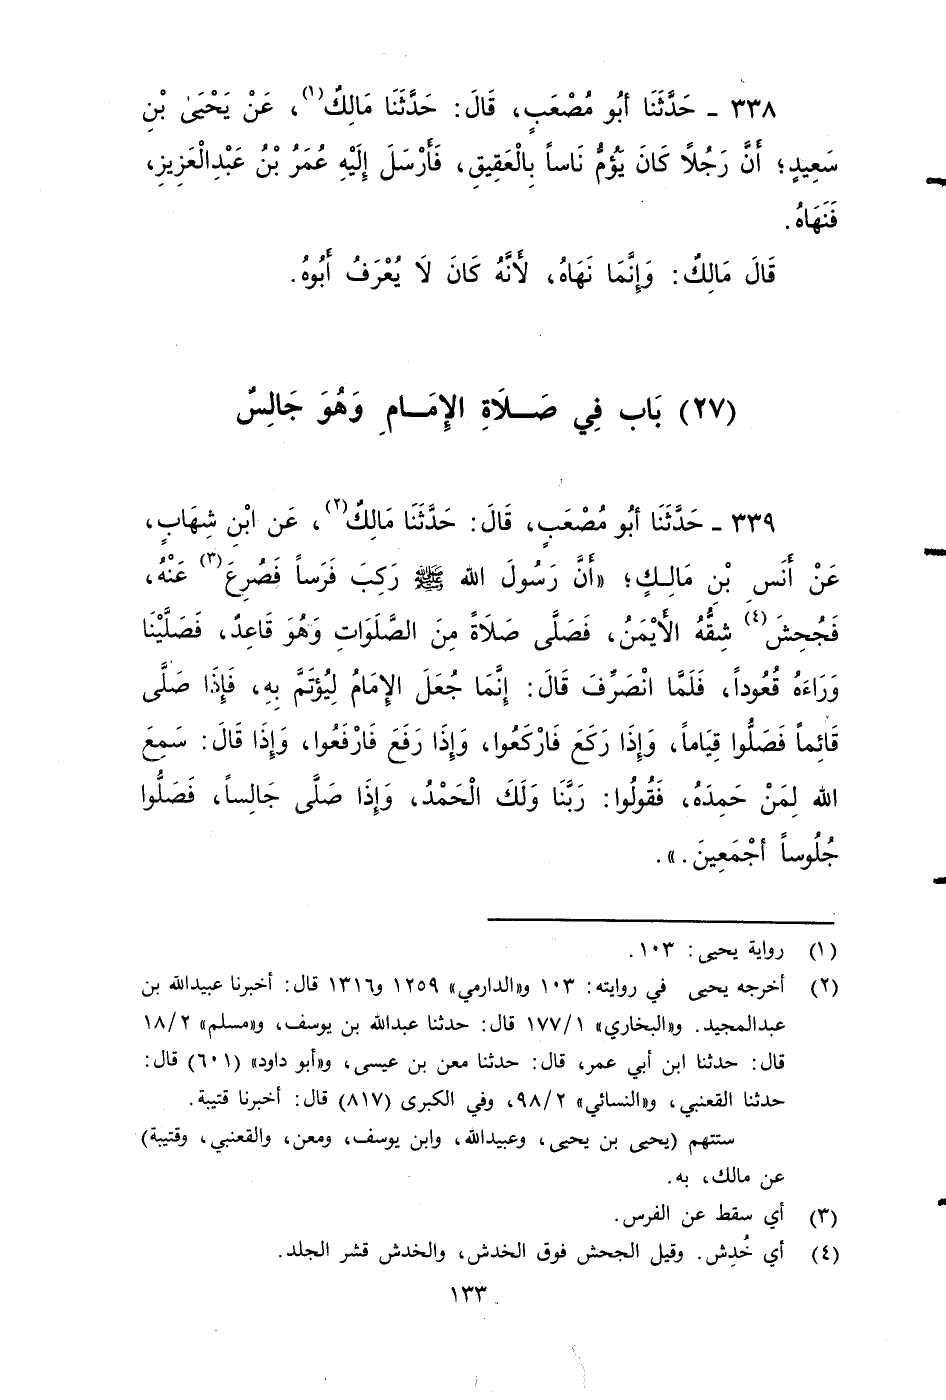 ٣٣٨ ـ حَدَّثَنَا أبُو مُصْعَبٍ، قَالَ: حَدَّثَنَا مَالِكٌ(١)، عَنْ يَحْيَىٰ بْنِ
سَعِيدٍ؛ أَنَّ رَجُلاً كَانَ يَؤُمُّ نَاساً بِالْعَقِيقِ، فَأَرْسَلَ إِلَيْهِ عُمَرُ بْنُ عَبْدِالْعَزِيزِ،
فَنَهَاهُ.
قَالَ مَالِكٌ: وَإِنَّمَا نَهَاهُ، لأَنَّهُ كَانَ لَا يُعْرَفُ أَبُوهُ.
(٢٧) بَاب فِي صَلَاةِ الإِمَامِ وَهُوَ جَالِسٌ
٣٣٩ ـ حَدَّثَنَا أبُو مُصْعَبٍ، قَالَ: حَدَّثَنَا مَالِكٌ(٢)، عَن ابْنِ شِهَابٍ،
عَنْ أَنَسِ بْنِ مَالِكٍ؛ «أَنَّ رَسُولَ الله ﷺ رَكِبَ فَرَساً فَصُرِعَ(٣) عَنْهُ،
فَجُحِشَ(٤) شِقُّهُ الأَيْمَنُ، فَصَلَّى صَلَاةً مِنَ الصَّلَوَاتِ وَهُوَ قَاعِدٌ، فَصَلَّيْنَا
وَرَاءَهُ قُعُوداً، فَلَمَّا انْصَرَفَ قَالَ: إِنَّمَا جُعَلَ الإِمَامُ لِيُؤتَمَّ بِهِ، فَإِذَا صَلَّى
قَائِماً فَصَلُّوا قِيَاماً، وَإِذَا رَكَعَ فَارْكَعُوا، وَإِذَا رَفَعَ فَارْفَعُوا، وَإِذَا قَالَ: سَمِعَ
الله لِمَنْ حَمِدَهُ، فَقُولُوا: رَبَّنَا وَلَكَ الْحَمْدُ، وَإِذَا صَلَّى جَالِساً، فَصَلُّوا
جُلُوساً أجْمَعِينَ.».
(١) رواية يحيى: ١٠٣.
(٢) أخرجه يحيى في روايته: ١٠٣ و«الدارمي» ١٢٥٩ و١٣١٦ قال: أخبرنا عبيدالله بن
عبدالمجيد. و«البخاري» ١٧٧/١ قال: حدثنا عبدالله بن يوسف، و«مسلم» ١٨/٢
قال: حدثنا ابن أبي عمر، قال: حدثنا معن بن عيسى، و«أبو داود» (٦٠١) قال:
حدثنا القعنبي، و«النسائي» ٩٨/٢، وفي الكبرى (٨١٧) قال: أخبرنا قتيبة.
ستتهم (يحيى بن يحيى، وعبيدالله، وابن يوسف، ومعن، والقعنبي، وقتيبة)
عن مالك، به.
(٣) أي سقط عن الفرس.
(٤) أي خُدِش. وقيل الجحش فوق الخدش، والخدش قشر الجلد.
١٣٣